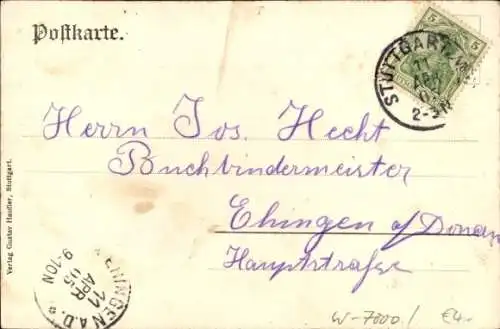 Postkarte.
5 5
STUTTGART
11
APR
2-3N
Herrn Jos. Hecht
Buchbindermeister
Ehingen a/Donau
Hauptstraße
Verlag Gustav Haufler, Stuttgart.
EHINGEN A.D.
11
APR
05
9-10N
W-7000/ €4.-